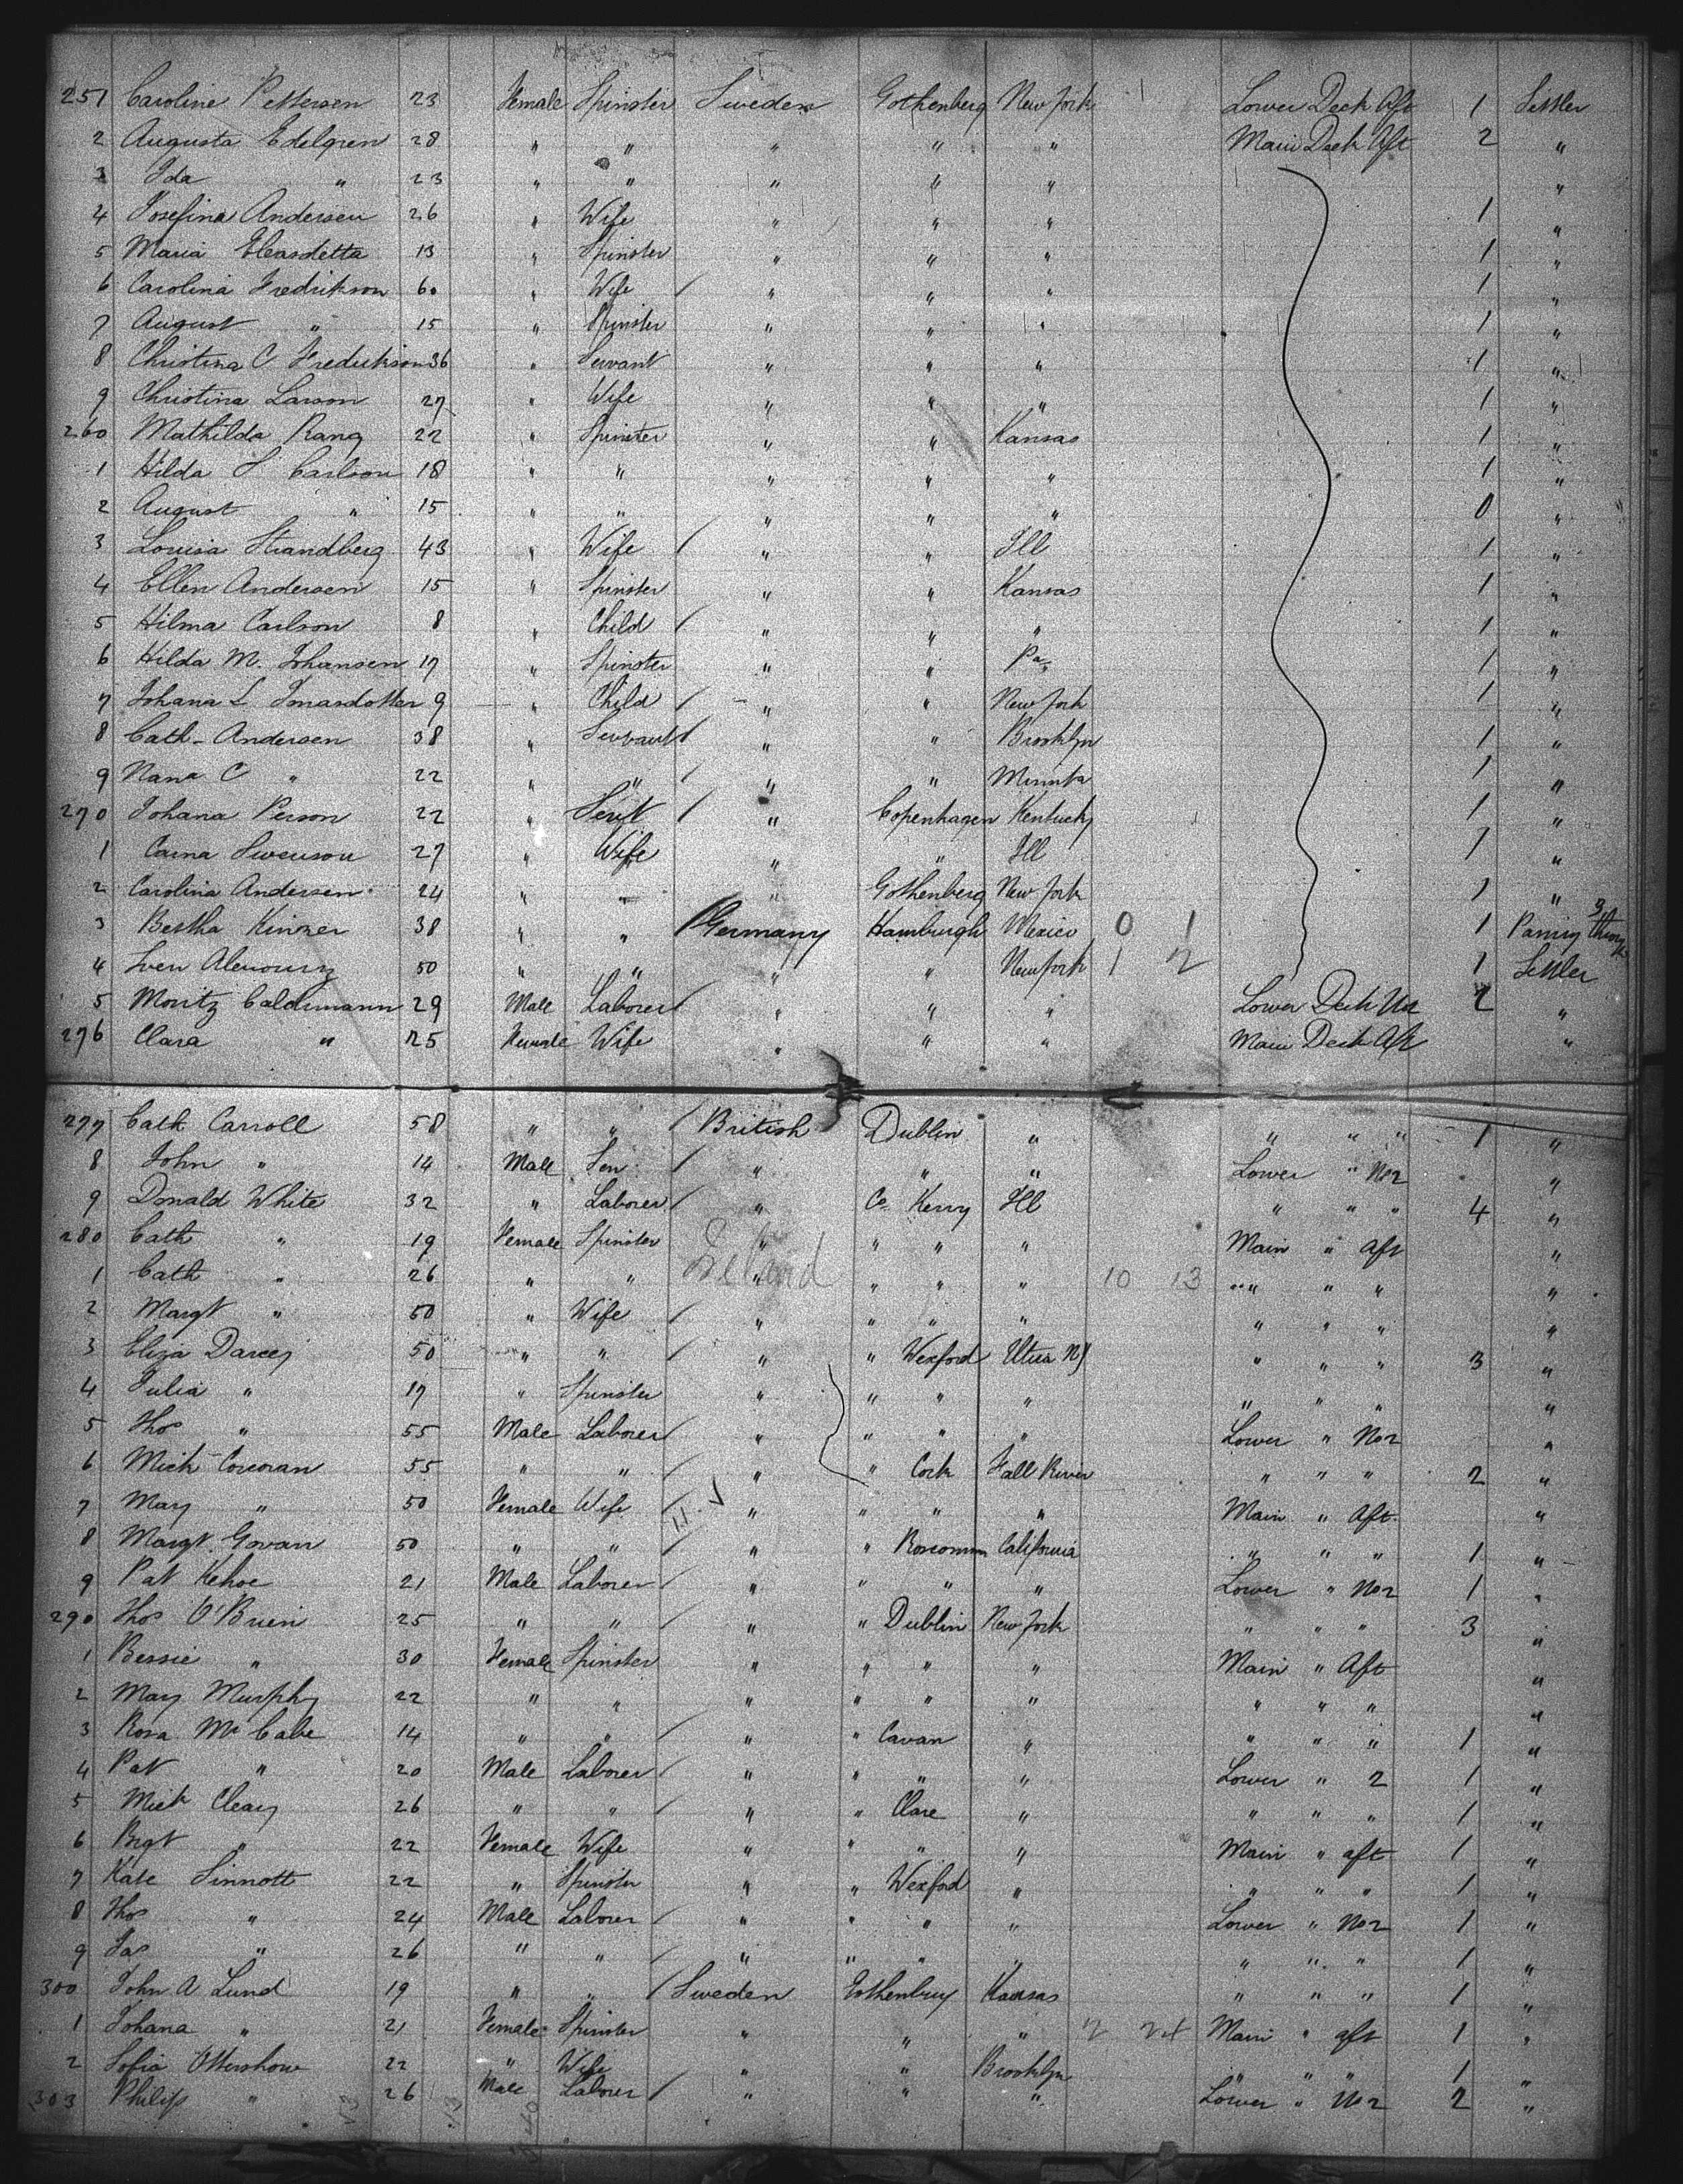 251 Caroline Pettersen 23 Female Spinster Sweden Gothenberg New York Lower Deck Aft 1 Settler
2 Augusta Edelgren 28 " " " " " Main Deck Aft 2 "
3 Ida " 23 " " " " " "
4 Josefina Andersen 26 " Wife " " " 1 "
5 Maria 13 " Spinster " " " 1 "
6 Carolina Fredrikson 60 " Wife / " " " 1 "
7 August " 15 " Spinster " " " 1 "
8 Christina C Fredrikson 36 " Servant " " " 1 "
9 Christina Larson 27 " Wife " " " 1 "
260 Mathilda Rang 22 " Spinster " " Kansas 1 "
1 Hilda S Carlson 18 " " " " " 1 "
2 August " 15 " " " " " 0 "
3 Louisa Strandberg 43 " Wife / " " Ill 1 "
4 Ellen Andersen 15 " Spinster " " Kansas 1 "
5 Hilma Carlson 8 " Child / " " " 1 "
6 Hilda M. Johansen 17 " Spinster " " Pa 1 "
7 Johana L 9 " Child / " " New York 1 "
8 Cath Andersen 38 " Servant / " " Brooklyn 1 "
9 Nana C " 22 " " / " " 1 "
270 Johana Person 22 " Servt / " Copenhagen Kentucky 1 "
1 Carna Swenson 27 " Wife " " Ill 1 "
2 Carolina Andersen 24 " " " Gothenberg New York 1 "
3 Bertha Kinzer 38 " " / Germany Hamburgh Mexico 0 1 1
4 50 " " " " New York 1 2 1 Settler
5 Moritz 29 Male Laborer / " " " Lower Deck No 2 2 "
276 Clara " 25 Female Wife " " " Main Deck Aft "
277 Cath Carroll 58 " " / British Dublin " " " " 1 "
8 John " 14 Male Son / " " " Lower " No 2 "
9 Donald White 32 " Laborer / " Co Kerry Ill " " " 4 "
280 Cath " 19 Female Spinster " " " " Main " Aft "
1 Cath " 26 " " Ireland " " " " 10 13 " " " "
2 Margt " 50 " Wife / " " " " " " " "
3 Eliza Darcey 50 " " / " " Wexford Utica NY " " " 3 "
4 Julia " 17 " Spinster " " " " " " " "
5 Thos " 55 Male Laborer / " " " " Lower " No 2 "
6 Mich Corcoran 55 " " / " " Cork Fall River " " " 2 "
7 Mary " 50 Female Wife / 11 " " " " Main " Aft "
8 Margt Govan 50 " " / " " Roscomm California " " " 1 "
9 Pat Kehoe 21 Male Laborer / " " " " Lower " No 2 1 "
290 Thos O'Brien 25 " " / " " Dublin New York " " " 3 "
1 Bessie " 30 Female Spinster " " " " Main " Aft "
2 Mary Murphy 22 " " " " " " " " " "
3 Rosa Mc Cabe 14 " " / " " Cavan " " " " 1 "
4 Pat " 20 Male Laborer / " " " " Lower " 2 1 "
5 Mich Cleary 26 " " / " " Clare " " " " 1 "
6 Brgt " 22 Female Wife " " " " Main " aft 1 "
7 Kate Sinnott 22 " Spinster " " Wexford " " " " 1 "
8 Thos " 24 Male Laborer / " " " " Lower " No 2 1 "
9 Jas " 26 " " / " " " " " " " 1 "
300 John A Lund 19 " " / Sweden Gothenburg Kansas " " " 1 "
1 Johana " 21 Female Spinster " " " 2 24 Main " aft 1 "
2 Sofia 22 " Wife " " Brooklyn " " " 1 "
303 Philip " 26 Male Laborer / " " " Lower " No 2 2 "